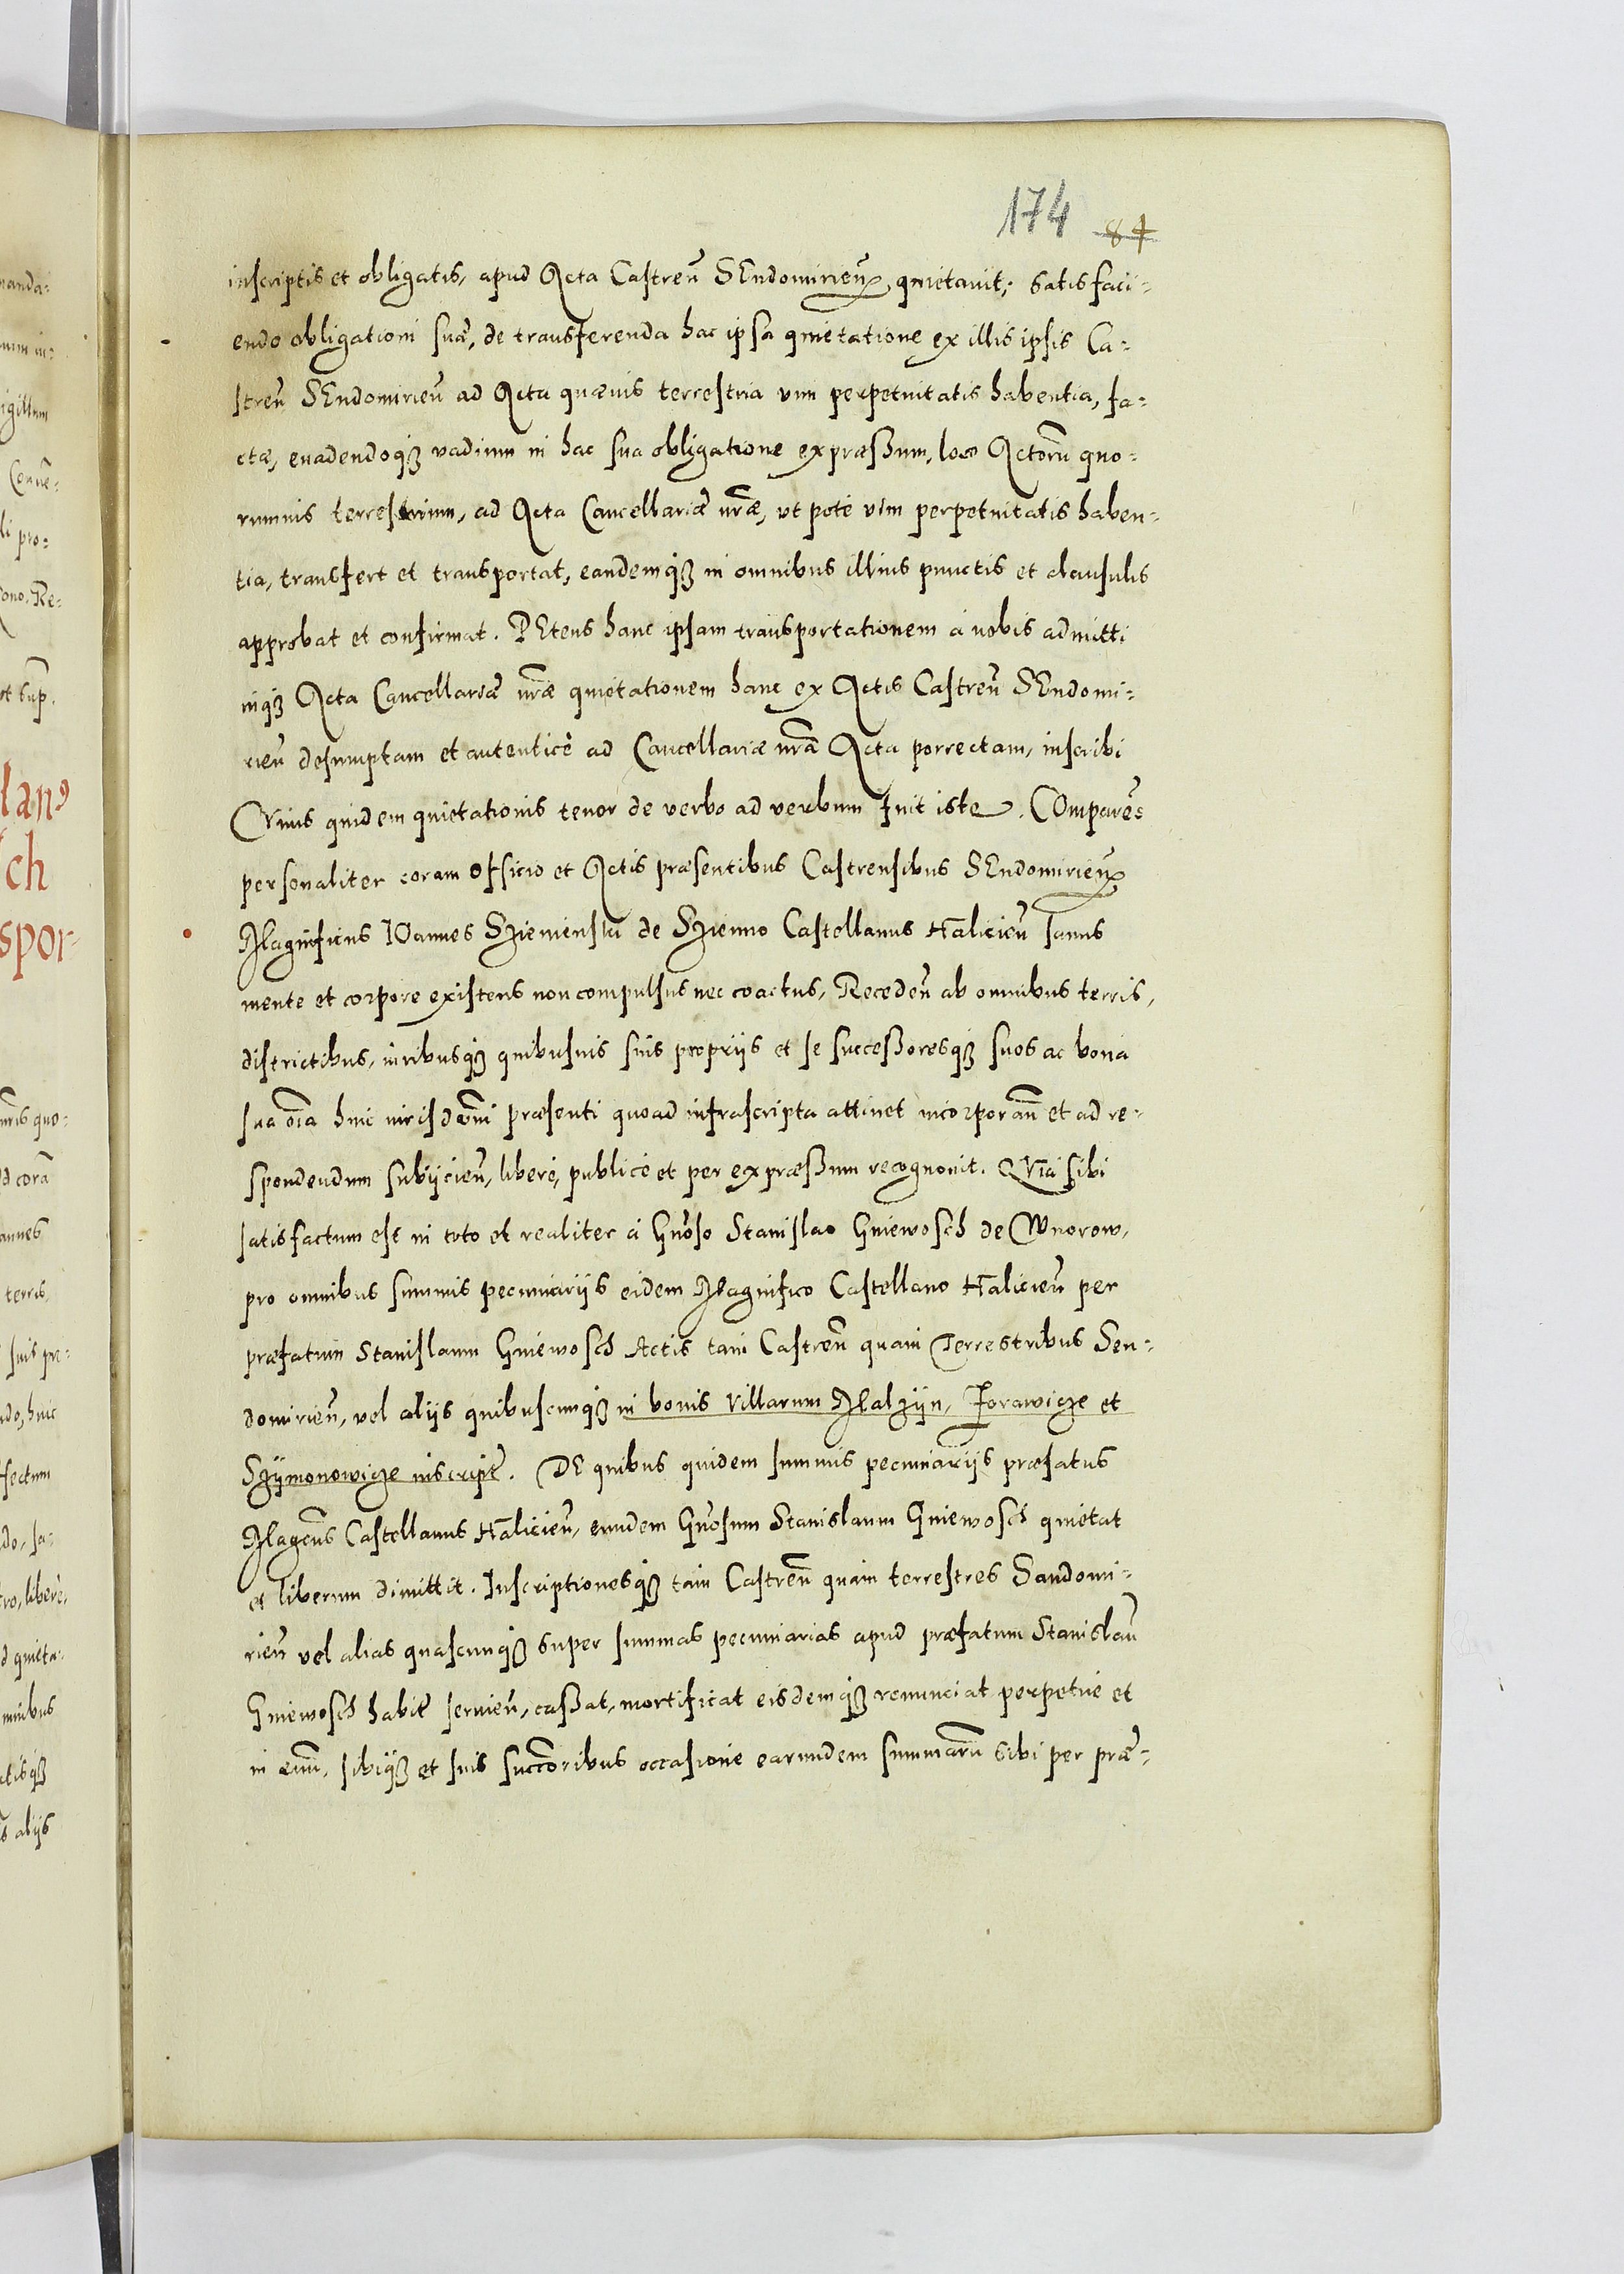 174 87
inscriptis et obligatis, apud Acta Castreñ SEndomirieñ, quietauit; Satisfaci-
endo obligationi suæ, de transferenda hac ipsa quietatione ex illis ipsis Ca-
streñ SEndomirieñ ad Acta quæuis terrestria vim perpetuitatis habentia, fa-
ctæ, euadendoq3 vadium in hac sua obligatione expræssum, loco Actorũ quo-
rumuis terrestrium, ad Acta Cancellariæ nr̃æ, vt pote vim perpetuitatis haben-
tia, transfert et transportat, eandemq3 in omnibus illius punctis et clausulis
approbat et confirmat. PEtens hanc ipsam transportationem à nobis admitti
inq3 Acta Cancellariæ nr̃æ quietationem hanc ex Actis Castreñ SEndomi-
rieñ desumptam et autenticè ad Cancellariæ nr̃æ Acta porrectam, inscribi
CVius quidem quietationis tenor de verbo ad verbum fuit iste. COmpareñs
personaliter coram officio et Actis præsentibus Castrensibus SEndomirieñ
Magnificus IOannes Szienienski de Szienno Castellanus Halicieñ sanus
mente et corpore existens non compulsus nec coactus, Recedeñ ab omnibus terris,
districtibus, iuribusq3 quibusuis suis proprijs et se successoresq3 suos ac bona
sua oĩa huic iurisdcõni præsenti quoad infrascripta attinet incorporañ et ad re-
spondendum subijcieñ, liberè, publicè et per expræssum recognouit. QVia sibi
satisfactum est in toto et realiter à Gñoso Stanislao Gniewosch de Wnorow,
pro omnibus summis pecuniarijs eidem Magnifico Castellano Halicieñ per
præfatum Stanislaum Gniewosch Actis tam Castreñ quam Terrestribus Sen-
domirieñ, vel alijs quibuscunq3 in bonis Villarum Malzÿn, Jorawicze et
Szÿmonowicze inscript̃. DE quibus quidem summis pecuniarijs præfatus
Magcũs Castellanus Halicieñ, eundem Gñosum Stanislaum Gniewosch quietat
et liberum dimittit. Inscriptionesq3 tam Castreñ quam terrestres Sandomi-
rieñ vel alias quascunq3 super summas pecuniarias apud præfatum Stanislaũ
Gniewosch habit̃ seruieñ, cassat, mortificat eisdemq3 renunciat perpetuè et
in æuũ, sibiq3 et suis succoribus occasione earundem summarũ sibi per præ-